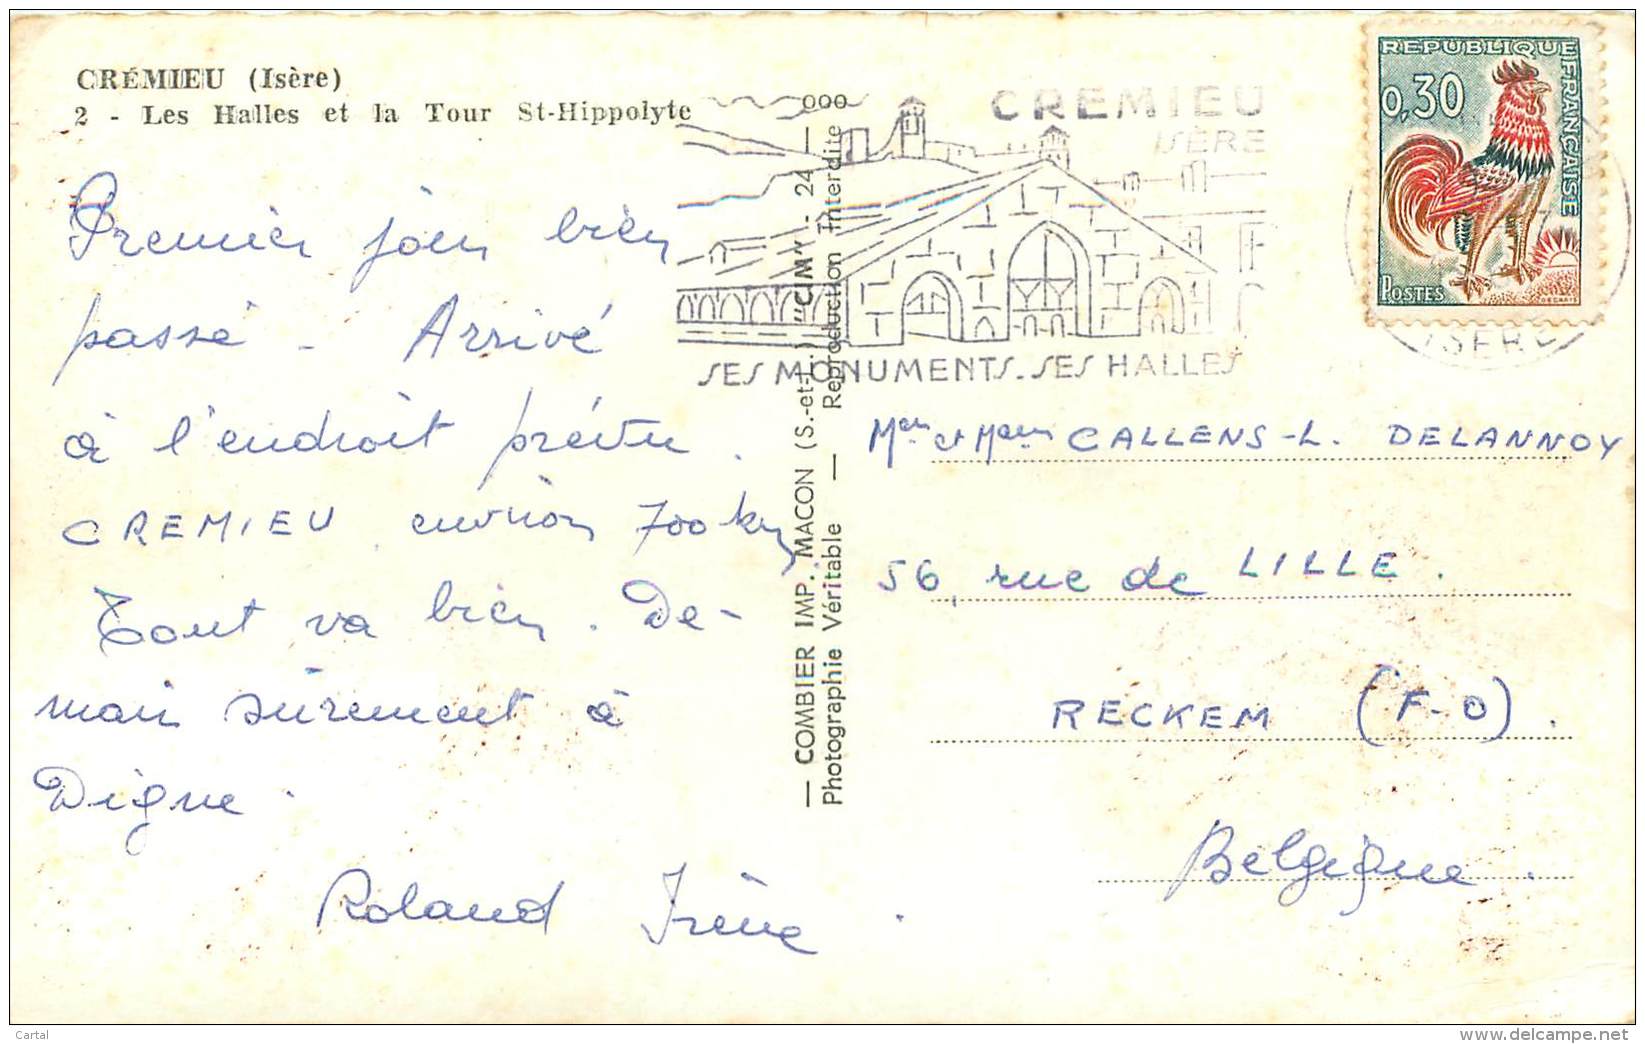 CRÉMIEU (Isère)
2 - Les Halles et la Tour St-Hippolyte
Premier jour bien
passé - Arrivé
à l'endroit prévu.
CREMIEU environ 700 km
Tout va bien. De-
main sûrement à
Digne.
Roland Irène.
— COMBIER IMP. MACON (S.-et-L.) "CIM" - 24 — 000
Photographie Véritable — Reproduction Interdite
CREMIEU
ISÈRE
SES MONUMENTS_SES HALLES
REPUBLIQUE FRANÇAISE
0,30
POSTES
DECARIS
ISERE
et CALLENS-L. DELANNOY
56, rue de LILLE.
RECKEM (F-O).
Belgique.
Cartal
www.delcampe.net